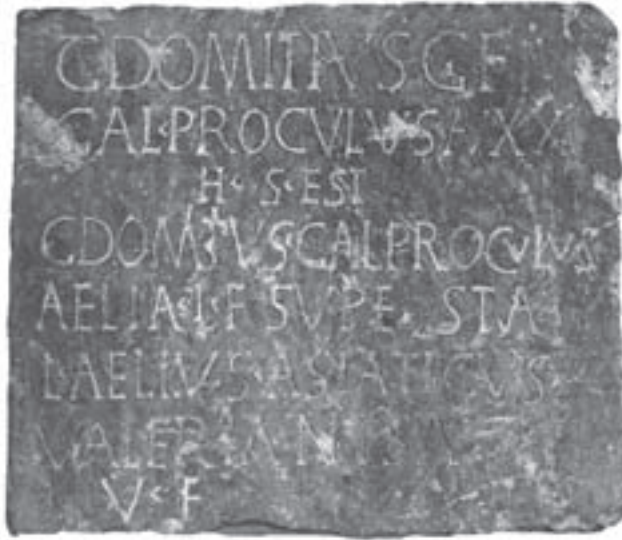 C DOMITIVS C F
CAL PROCVLVS A XX
H S EST
C DOMITIVS CAL PROCVLVS
AELIA L F SVPE STA
L AELIVS ASIATICVS
VALERIA
V F